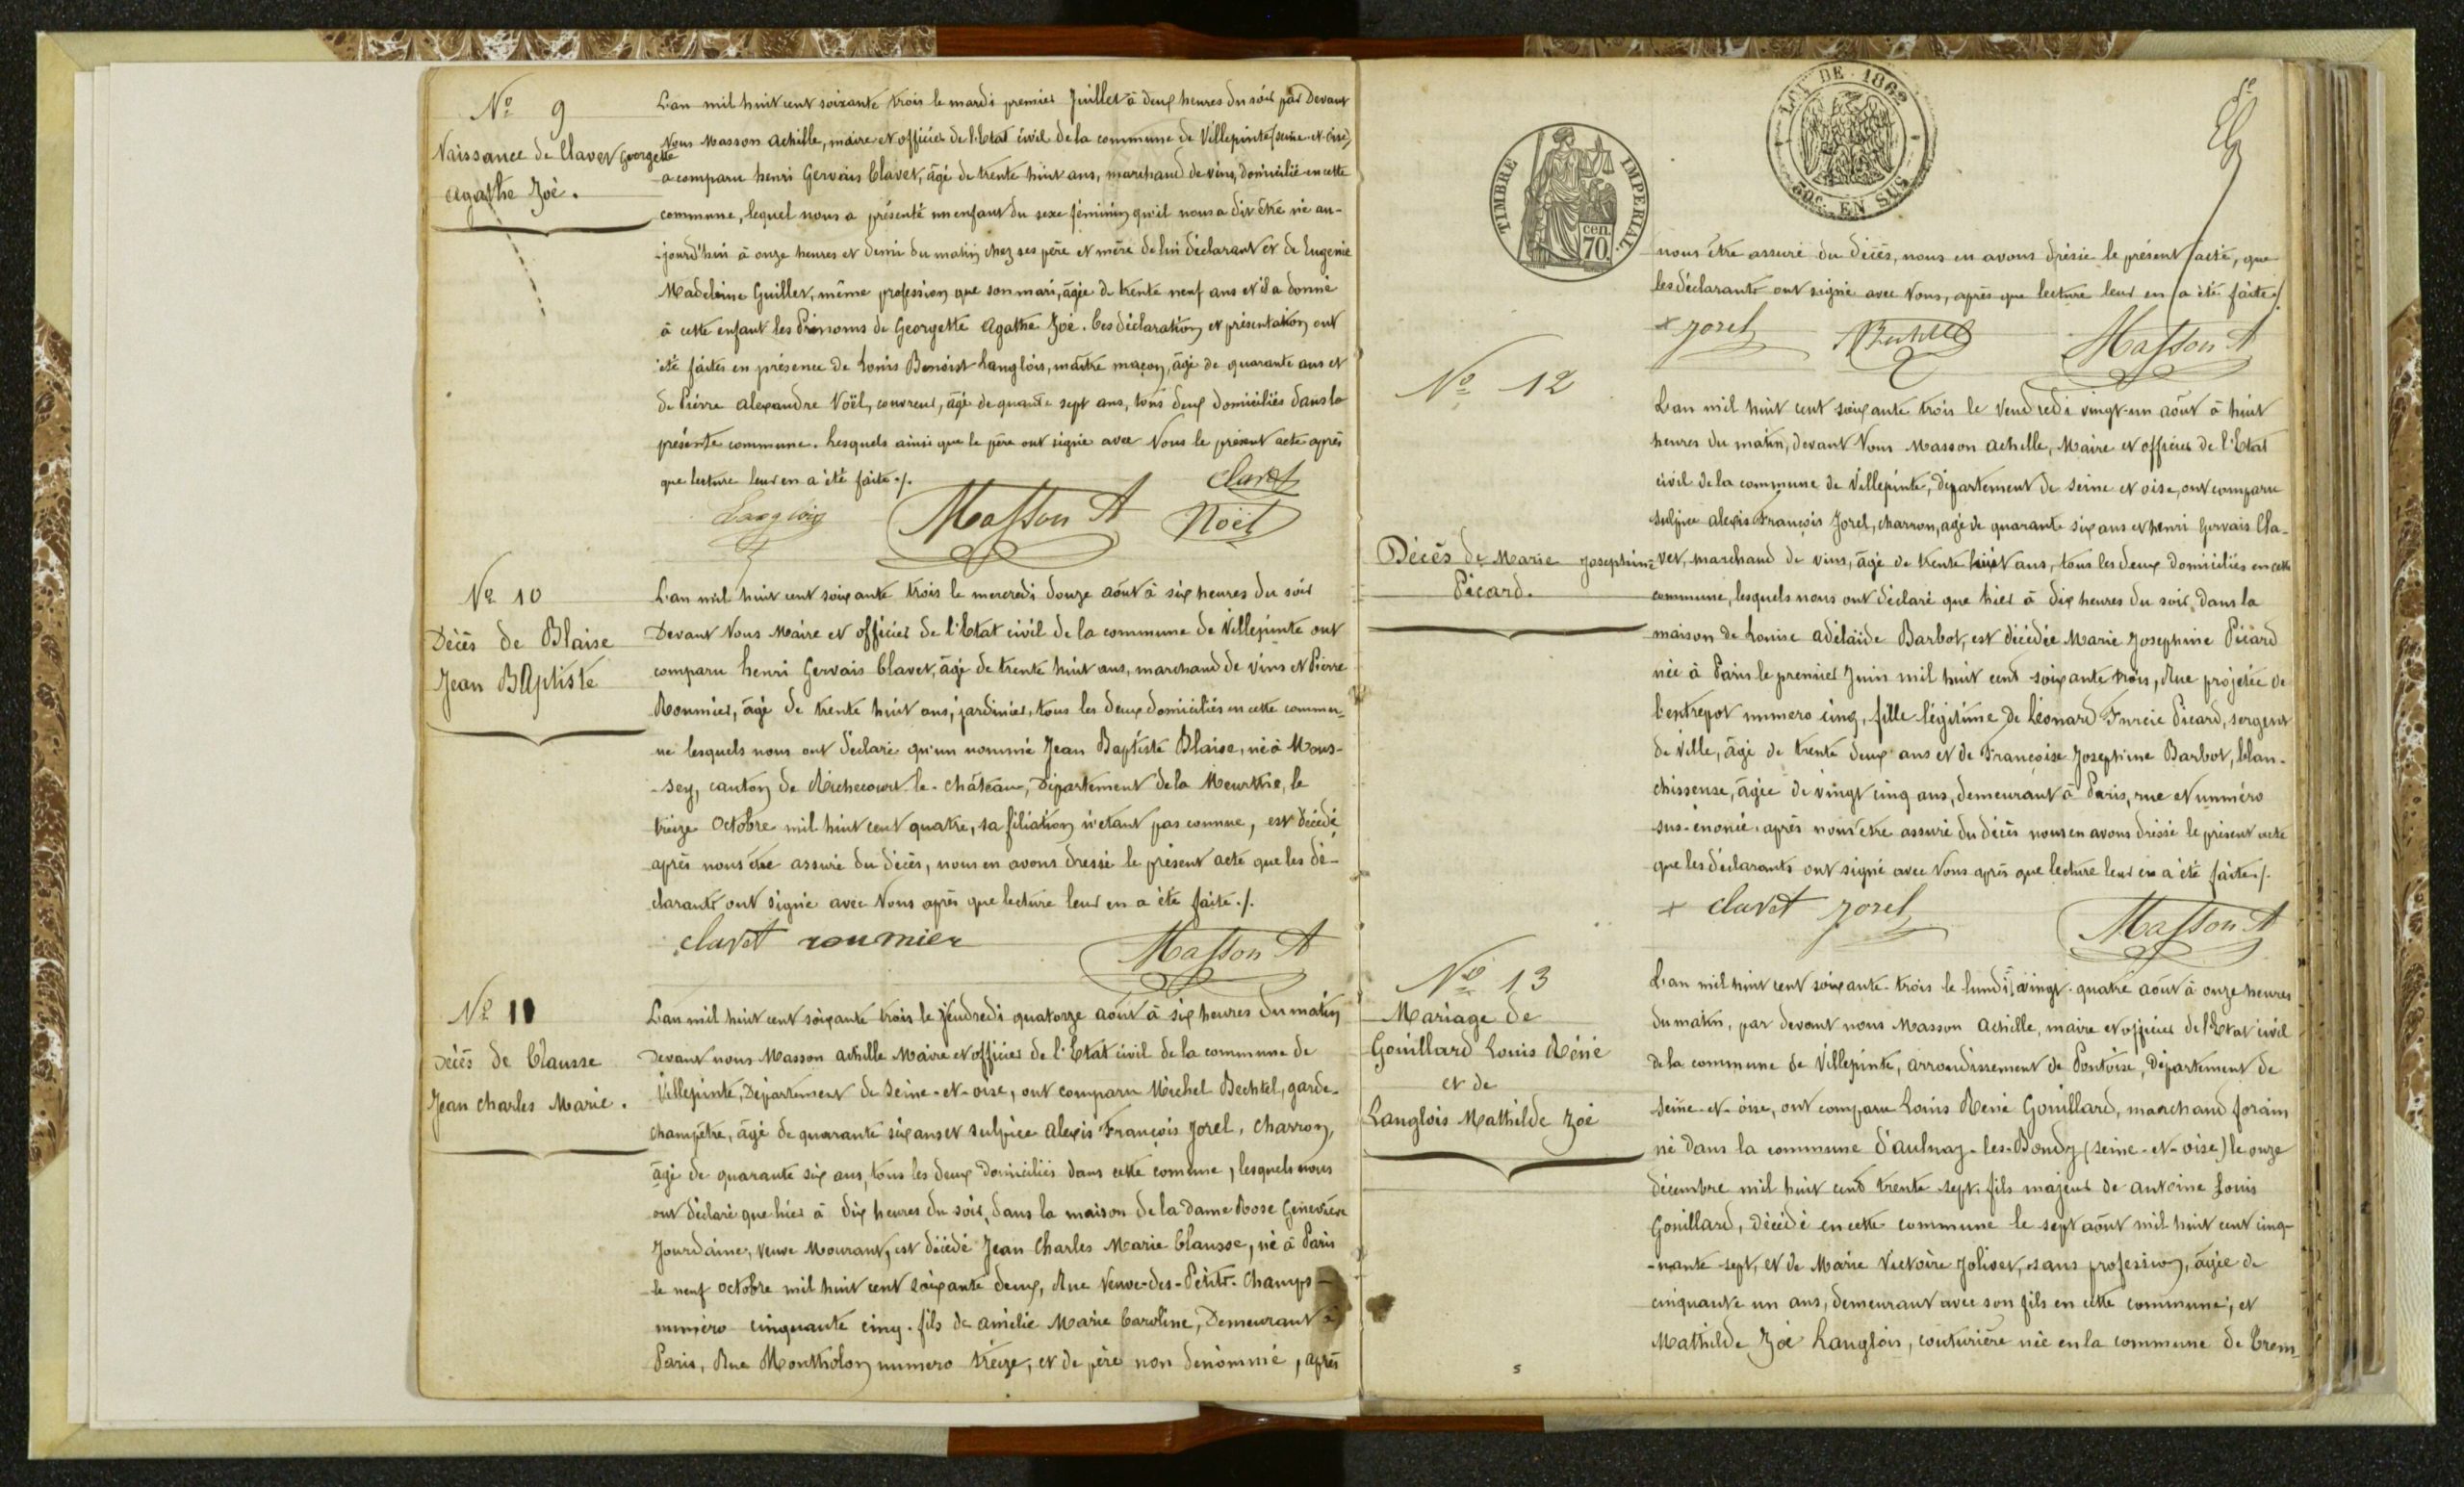 Nº 9
Naissance de Clavet Georgette
Agathe Zoé.
L'an mil huit cent soixante trois le mardi premier Juillet à deux heures du soir par Devant
Nous Masson Achille, maire et officier de l'Etat civil de la commune de Villepinte (Seine-et-Oise)
a comparu henri Gervais Clavet, âgé de trente huit ans, marchand de vins, domicilié en cette
commune, lequel nous a présenté un enfant du sexe féminin qu'il nous a dit être né au-
-jourd'hui à onze heures et demi du matin chez ses père et mère de lui déclarant et de Eugénie
Madeleine Guillet, même profession que son mari, âgée de trente neuf ans et il a donné
à cette enfant les Prénoms de Georgette Agathe Zoé. Ces déclaration et présentation ont
été faites en présence de Louis Benoist Langlois, maître maçon, âgé de quarante ans et
de Pierre Alexandre Noël, couvreur, âgé de quante sept ans, tous deux domiciliés dans la
présente commune. Lesquels ainsi que le père ont signé avec Nous le présent acte après
que lecture leur en a été faite ./.
Clavet
Langlois Masson A Noël
Nº 10
Décès de Blaise
Jean Baptiste
L'an mil huit cent soixante trois le mercredi douze août à six heures du soir
Devant Nous Maire et officier de l'Etat civil de la commune de Villepinte ont
comparu henri Gervais Clavet, âgé de trente huit ans, marchand de vins et Pierre
Roumier, âgé de trente huit ans, jardinier, tous les deux domiciliés en cette commu-
ne lesquels nous ont déclaré qu'un nommé Jean Baptiste Blaise, né à Mous-
-sey, canton de Réchicourt-le-château, Département de la Meurthe, le
treize Octobre mil huit cent quatre, sa filiation n'étant pas connue, est décédé
après nous être assuré du décès, nous en avons dressé le présent acte que les dé-
clarants ont signé avec Nous après que lecture leur en a été faite ./.
clavet roumier Masson A
Nº 11
Décès de Clausse
Jean Charles Marie.
L'an mil huit cent soixante trois le Vendredi quatorze août à six heures du matin
Devant nous Masson Achille Maire et officier de l'Etat civil de la commune de
Villepinte, Département de Seine-et-Oise, ont comparu Michel Bechtel, garde-
champêtre, âgé de quarante six ans et Sulpice Alexis François Jorel, Charron,
âgé de quarante six ans, tous les deux domiciliés dans cette comune, lesquels nous
ont déclaré que hier à dix heures du soir, dans la maison de la dame Rose Geneviève
Jourdaine, veuve Mourant, est décédé Jean Charles Marie Clausse, né à Paris
le neuf octobre mil huit cent soixante deux, Rue Neuve-des-Petits-Champs
numéro cinquante cinq. fils de amélie Marie Caroline, Demeurant à
Paris, Rue Montholon numero treize, et de père non dénommé, après
TIMBRE IMPERIAL
cen. 70
LOI DE 1862
50c. EN SUS
nous être assuré du décès, nous en avons drésié le présent acte, que
les déclarants ont signé avec Nous, après que lecture leur en a été faite ./.
+ Jorel Bechtel Masson A
Nº 12
Décès de Marie Josephine
Picard.
L'an mil huit cent soixante trois le Vendredi vingt-un août à huit
heures du matin, devant Nous Masson Achille, Maire et officier de l'Etat
civil de la commune de Villepinte, Département de Seine et Oise, ont comparu
Sulpice Alexis François Jorel, charron, agé de quarante six ans et henri Gervais Cla-
vet, marchand de vins, âgé de trente huit ans, tous les deux domiciliés en cette
commune, lesquels nous ont déclaré que hier à dix heures du soir, dans la
maison de Louise Adélaïde Barbot, est décédée Marie Josephine Picard
née à Paris le premier Juin mil huit cent soixante trois, Rue projetée de
l'entrepôt numero cinq, fille légitime de Léonard Furcie Picard, sergent
de ville, âgé de trente deux ans et de Françoise Josephine Barbot, blan-
chisseuse, âgée de vingt cinq ans, demeurant à Paris, rue et numéro
sus-énoncé. après nous être assuré du décès nous en avons dressé le présent acte
que les déclarants ont signé avec Nous après que lecture leur en a été faite ./.
+ clavet Jorel Masson A
Nº 13
Mariage de
Gouillard Louis Réné
et de
Langlois Mathilde Zoé
L'an mil huit cent soixante-trois le lundi vingt-quatre août à onze heures
du matin, par devant nous Masson Achille, maire et officier de l'Etat civil
de la commune de Villepinte, arrondissement de Pontoise, Département de
Seine-et-Oise, ont comparu Louis Réné Gouillard, marchand forain
né dans la commune d'Aulnay-les-Bondy (Seine-et-Oise) le onze
décembre mil huit cent trente sept. fils majeur de Antoine Louis
Gouillard, décédé en cette commune le sept août mil huit cent cinq-
-uante sept, et de Marie Victoire Jolivet, sans profession, âgée de
cinquante un ans, demeurant avec son fils en cette commune; et
Mathilde Zoé Langlois, couturière née en la commune de Trem-